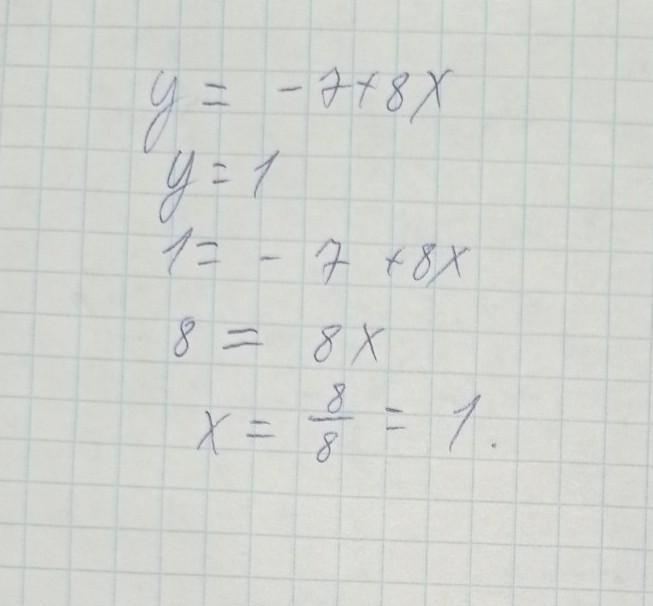 y = -7+8x
y = 1
1 = - 7 +8x
8 = 8x
x = 8/8 = 1.